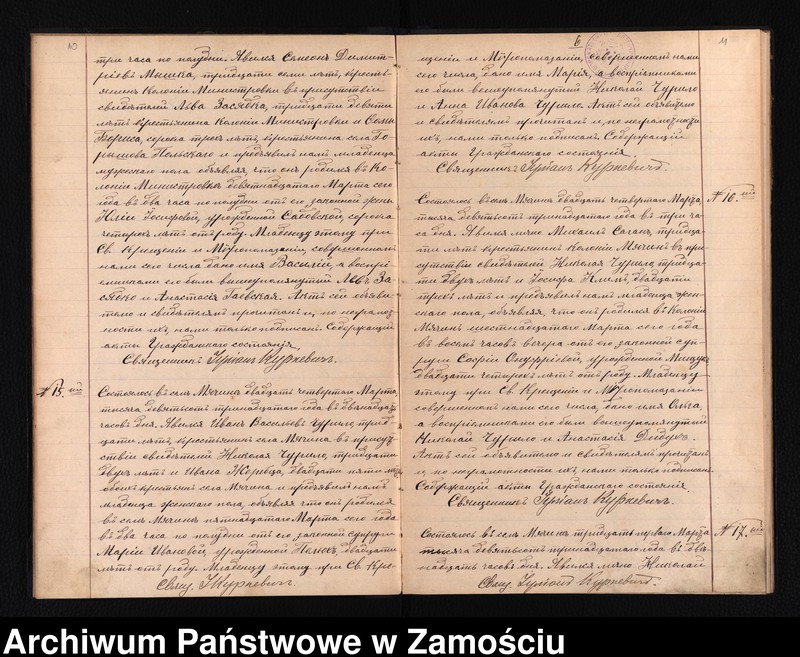 10
три часа по полудни. Явился Симеонъ Димит-
ріевъ Мышка, тридцати семи лѣтъ, кресть-
янинъ Колоніи Министровки въ присутствіи
свидѣтелей Льва Засядко, тридцати девяти
лѣтъ крестьянина Колоніи Министровки и
Бориса, сорока трехъ лѣтъ, крестьянина села Го-
рышова Польскаго и предъявилъ намъ младенца
мужескаго пола объявляя, что онъ родился въ Ко-
лоніи Министровкѣ девятнадцатаго Марта сего
года въ два часа по полудни отъ его законной жены
Юліи Іосифовой, урожденной Садовской, сорока
четырехъ лѣтъ отъ роду. Младенцу этому при
Св. Крещеніи и Мѵропомазаніи, совершенномъ
нами сего числа дано имя Василій, а воспрі-
емниками его были вышеупомянутый Левъ За-
сядко и Анастасія Гаевская. Актъ сей объяви-
телю и свидѣтелямъ прочитанъ и, по неграмот-
ности ихъ, нами только подписанъ. Содержащій
акты Гражданскаго состоянія,
Священникъ Іуліанъ Куркевичъ.
№ 15.ый
Состоялось въ селѣ Мячинѣ двадцать четвертаго Марта,
тысяча девятьсотъ тринадцатаго года въ двѣнадцать
часовъ дня. Явился Иванъ Васильевъ Чурило, трид-
цати лѣтъ, крестьянинъ села Мячина въ присут-
ствіи свидѣтелей Николая Чурило, тридцати
двухъ лѣтъ и Ивана Жеребца, двадцати пяти лѣтъ
обоихъ крестьянъ села Мячина и предъявилъ намъ
младенца женскаго пола, объявляя что онъ родился
въ селѣ Мячинѣ пятнадцатаго Марта сего года
въ два часа по полудни отъ его законной супруги
Маріи Ивановой, урожденной двадцати
лѣтъ отъ роду. Младенцу этому при Св. Кре-
Свящ. І Куркевичъ.
6
11
щеніи и Мѵропомазаніи, совершенномъ нами
сего числа, дано имя Марія, а воспріемниками
его были вышеупомянутый Николай Чурило
и Анна Иванова Чурило. Актъ сей объявителю
и свидѣтелямъ прочитанъ и, по неграмотности
ихъ, нами только подписанъ. Содержащій
акты Гражданскаго состоянія,
Священникъ Іуліанъ Куркевичъ.
№ 16.ый
Состоялось въ селѣ Мячинѣ двадцать четвертаго Марта,
тысяча девятьсотъ тринадцатаго года въ три ча-
са дня. Явился лично Михаилъ Саганъ, тридца-
ти лѣтъ крестьянинъ колоніи Мячинъ въ при-
сутствіи свидѣтелей Николая Чурило, тридца-
ти двухъ лѣтъ и Іосифа двадцати
трехъ лѣтъ и предъявилъ намъ младенца жен-
скаго пола, объявляя, что онъ родился въ колоніи
Мячинъ шестнадцатаго Марта сего года
въ восемь часовъ вечера отъ его законной суп-
руги Софіи Онуфріевой, урожденной
двадцати четырехъ лѣтъ отъ роду. Младенцу
этому при Св. Крещеніи и Мѵропомазаніи
совершенномъ нами сего числа, дано имя Ольга,
а воспріемниками его были вышеупомянутый
Николай Чурило и Анастасія
Актъ сей объявителю и свидѣтелямъ прочитанъ
и, по неграмотности ихъ, нами только подписанъ.
Содержащій акты Гражданскаго состоянія,
Священникъ Іуліанъ Куркевичъ.
№ 17.ый
Состоялось въ селѣ Мячинѣ тридцать перваго Марта
тысяча девятьсотъ тринадцатаго года въ двѣ-
надцать часовъ дня. Явился лично Николай
Свящ. Іуліанъ Куркевичъ.
Archiwum Państwowe w Zamościu